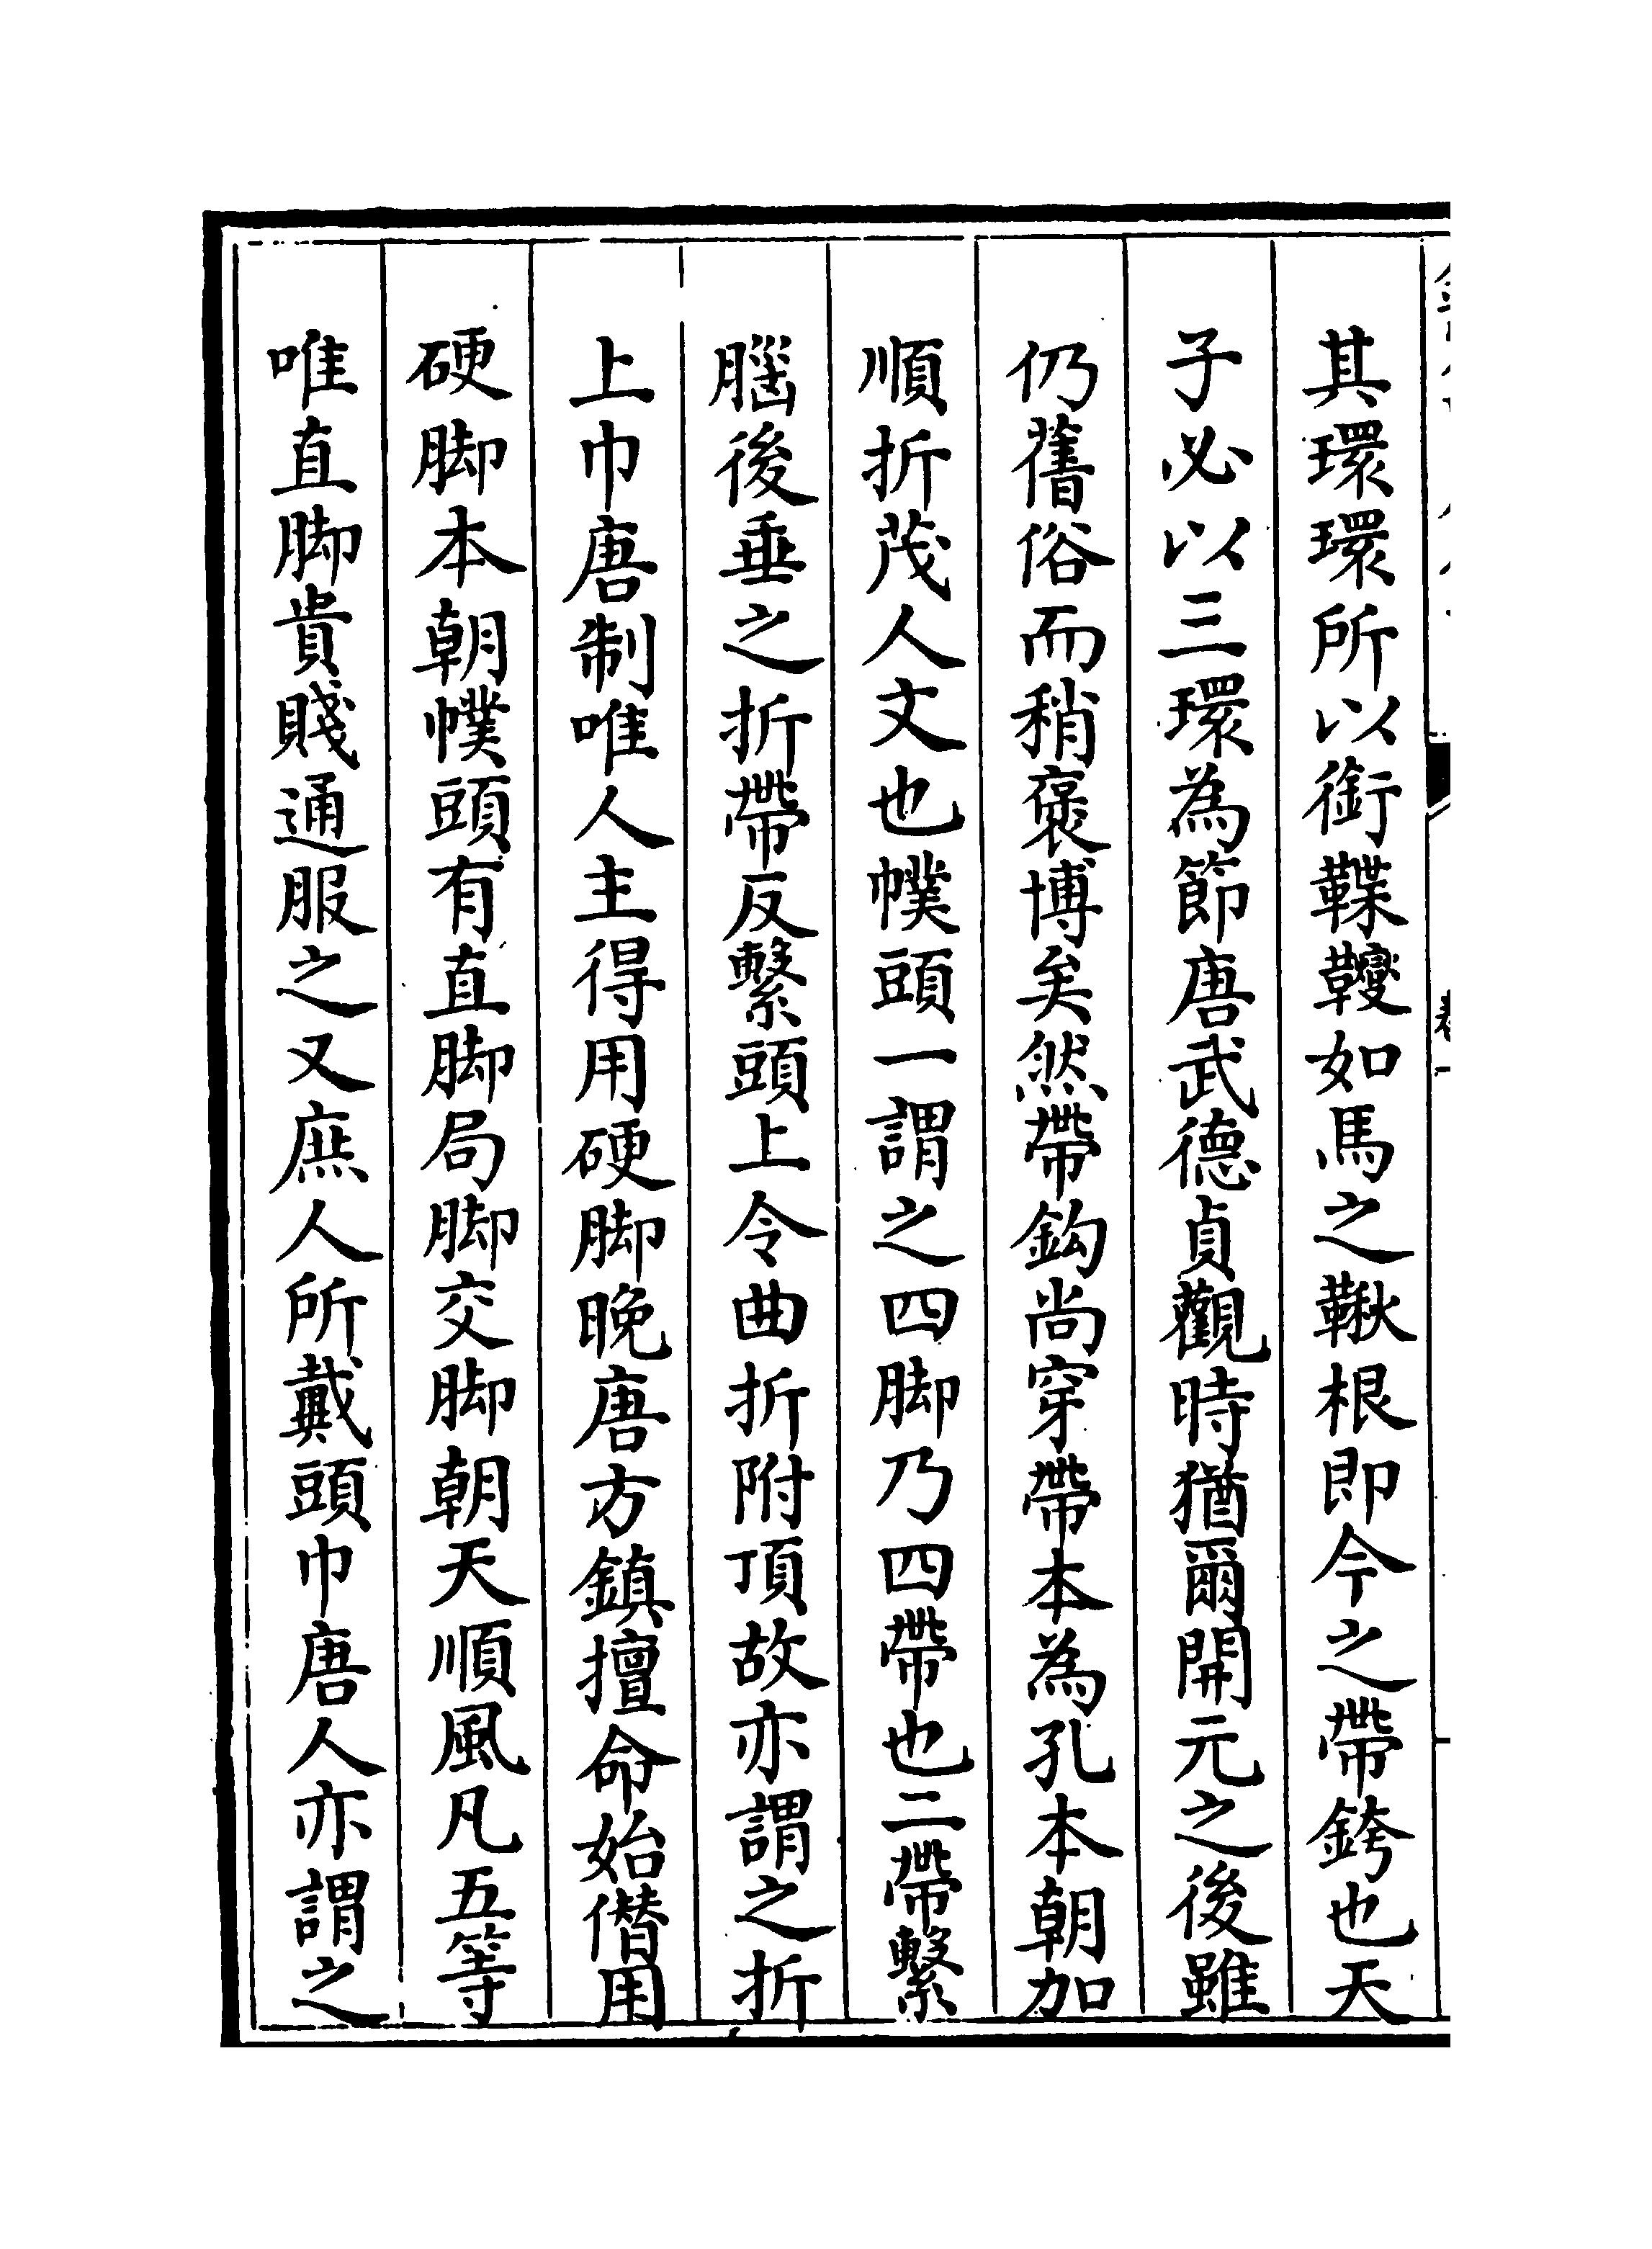 其環環所以銜鞢韄如馬之鞦根即今之帶銙也天
子必以三環為節唐武德貞觀時猶爾開元之後雖
仍舊俗而稍褒博矣然帶鈎尚穿帶本為孔本朝加
順折茂人文也幞頭一謂之四脚乃四帶也二帶繫
腦後垂之折帶反繫頭上令曲折附頂故亦謂之折
上巾唐制唯人主得用硬脚晚唐方鎮擅命始僭用
硬脚本朝幞頭有直脚局脚交脚朝天順風凡五等
唯直脚貴賤通服之又庶人所戴頭巾唐人亦謂之